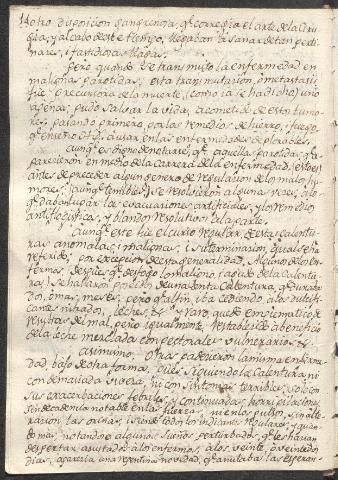 otra disposicion sangrienta, qᵉ corregia el arte dela Ciru
gia, y al cabo de este tiempo, llegaban a sanar de tan perti
nazes, i fastidiosas llagas.
Pero quando se transmuto la enfermedad en
malignas parotidas, esta transmutacion, o metastasis
fuè precursora dela muerte, (como ia se ha dicho) uno
apenas pudo salvar la vida, acometido de estos tumo
res, pasando primero, por los remedios de hierro, i fuego,
qᵉ en causar en las enfermedades deplorables.
Aunqᵉ es digno de notarse, qᵉ aquellas parotidas, qᵉ a
parecieron en medio dela carrera dela enfermedad,
antes de preceder algun genero de regulacion delos malos hu
mores, (aunqᵉ temibles) se resolvieron algunas veces, alo
qᵉ daban lugar las evacuaciones artificiales, y los remedios
antiflogisticos, y blandos resolutivos ala parte.
Aunqᵉ este fue el curso regular, de estas calentu
ras anomalas, i malignas, i su terminacion, qual se ha
referido, por excepcion de esta generalidad, Algunos delos en
fermos, despues qᵉ desfogo lo maligno, i agudo dela Calentu
ra, se hallaron poseidos de una lenta Calentura, qᵉ duraba
dos, o mas, meses, pero qᵉ al fin, iba cediendo alos dulcifi
cantes nitrados, leches, &ᵃ y raro, quedo emblematico de
resultas del mal, pero igualmente restablecido a beneficio
dela leche mezclada con pectorales vulnerarios &ᵃ
Asimismo, Otros padecieron la misma enferme
dad, bajo de otra forma, pues siguiendo la Calentura, ni
con demasiada viveza, ni con sintomas terribles, solo con
sus exacerbaciones febriles, y continuadas, horripilaciones,
sin decadencia notable en las fuerzas, ni en los pulsos, sin alte
racion las orinas, i siendo todos los indicantes regulares, y quan
do mas, notando a algunos sueños perturbados, qᵉ les hacian
despertar asustados alos enfermos, alos veinte, o veinte dos
dias, aparecia una repentina novedad, qᵉ anulaba las esperan